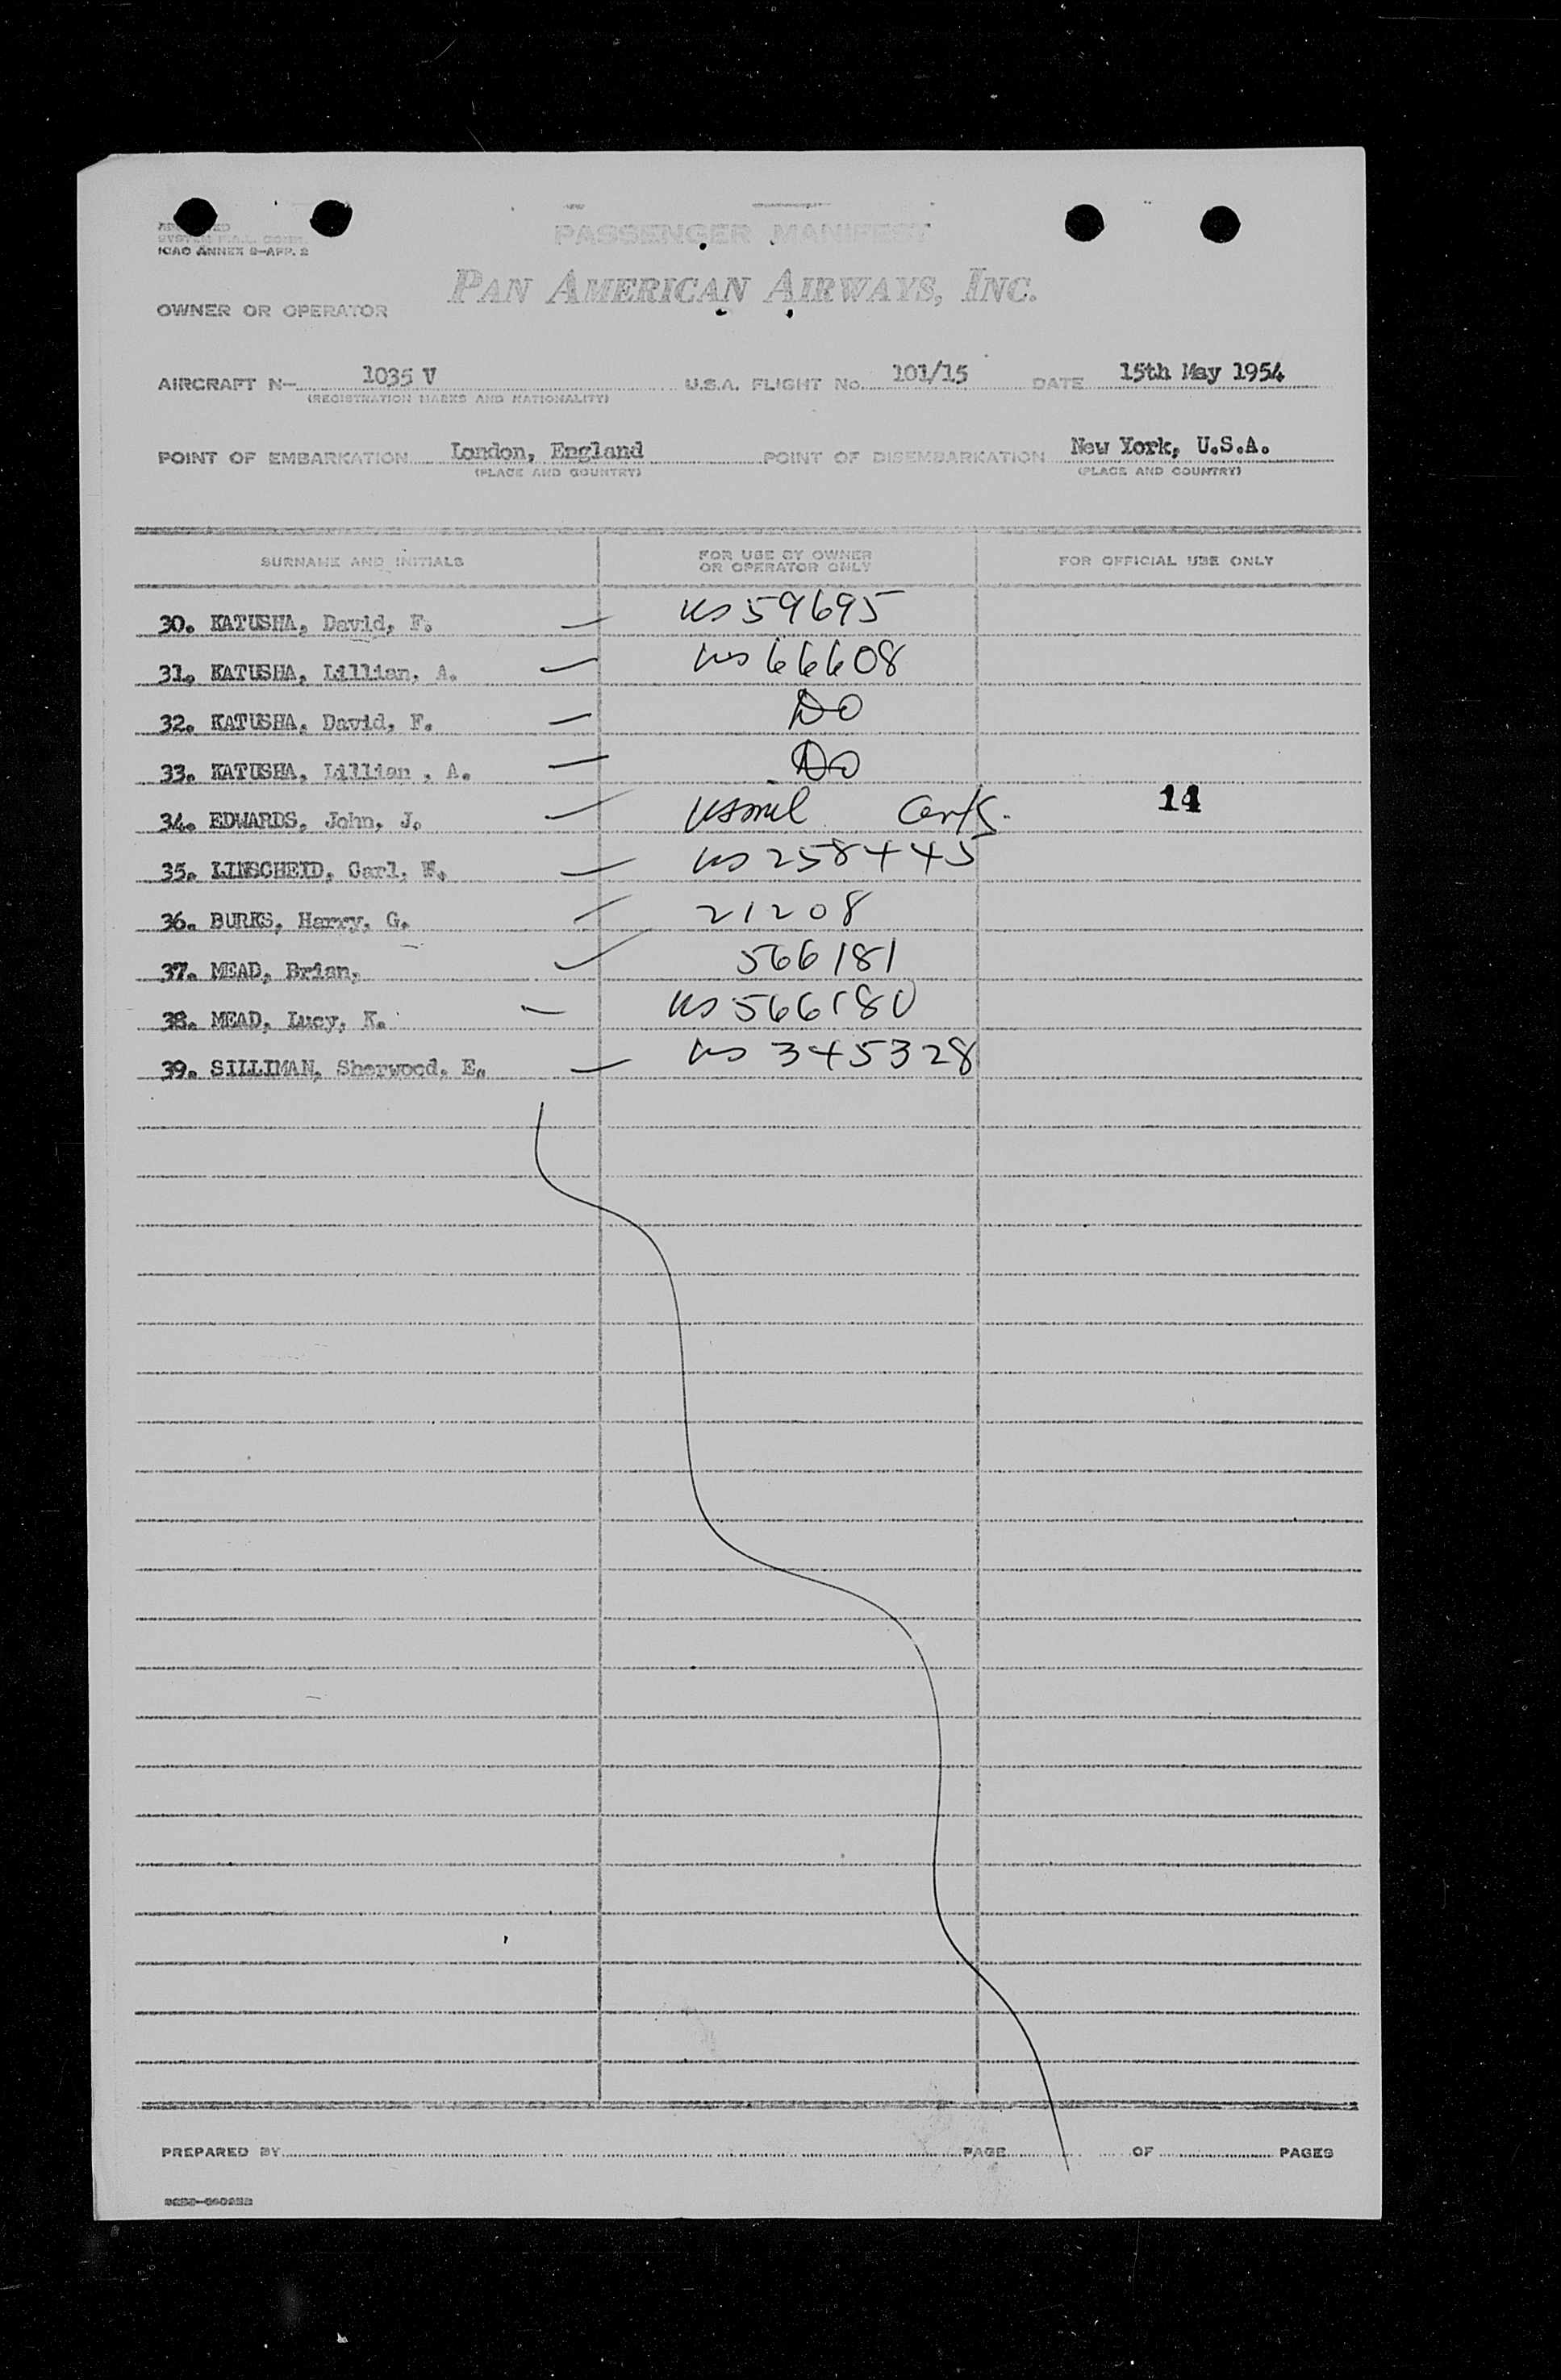 ICAO ANNEX 9—APP. 2
PASSENGER MANIFEST
PAN AMERICAN AIRWAYS, INC.
OWNER OR OPERATOR
AIRCRAFT N— 1035 V U.S.A. FLIGHT No. 101/15 DATE 15th May 1954
(REGISTRATION MARKS AND NATIONALITY)
POINT OF EMBARKATION London, England POINT OF DISEMBARKATION New York, U.S.A.
(PLACE AND COUNTRY) (PLACE AND COUNTRY)
SURNAME AND INITIALS FOR USE BY OWNER OR OPERATOR ONLY FOR OFFICIAL USE ONLY
30. KATUSHA, David, F. — US 59695
31. KATUSHA, Lillian, A. — US 66608
32. KATUSHA, David, F. — DO
33. KATUSHA, Lillian , A. — DO
34. EDWARDS, John, J. — US mil Certs. 14
35. LINSCHEID, Carl, W. — US 258445
36. BURKS, Harry, G. — 21208
37. MEAD, Brian, — 566181
38. MEAD, Lucy, K. — US 566180
39. SILLIMAN, Sherwood, E. — US 345328
PREPARED BY PAGE OF PAGES